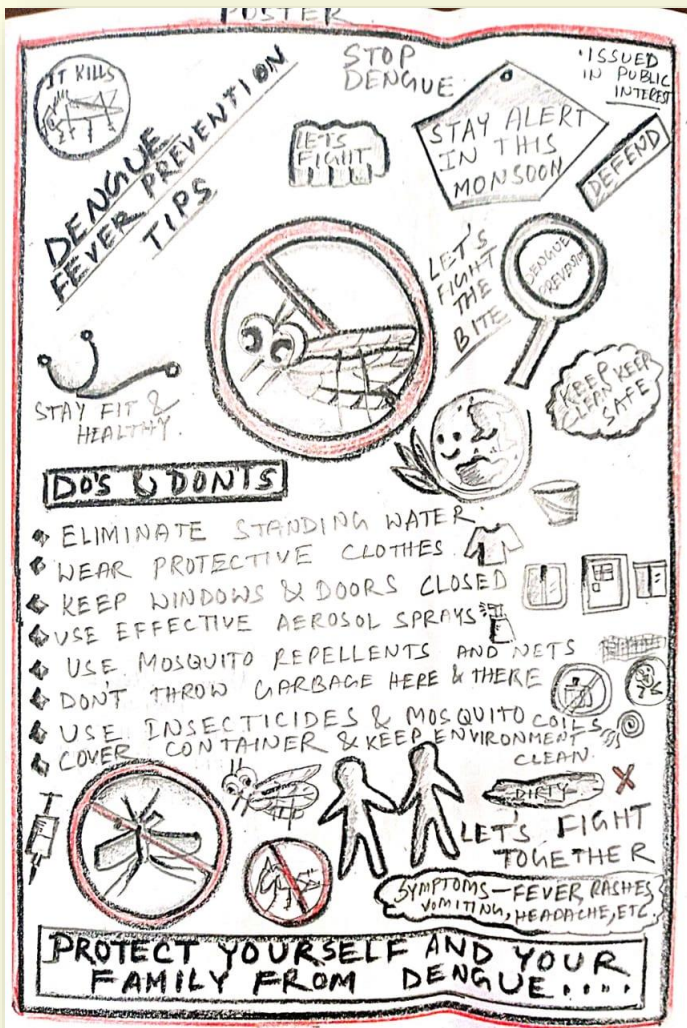 POSTER
IT KILLS
DENGUE
FEVER PREVENTION
TIPS
STOP
DENGUE
LET'S
FIGHT
STAY ALERT
IN THIS
MONSOON
ISSUED
IN PUBLIC
INTEREST
DEFEND
LET'S
FIGHT
THE
BITE
DENGUE
KEEP
CLEAN KEEP
SAFE
STAY FIT &
HEALTHY.
DO'S & DONTS
ELIMINATE STANDING WATER.
WEAR PROTECTIVE CLOTHES
KEEP WINDOWS & DOORS CLOSED
USE EFFECTIVE AEROSOL SPRAYS
USE MOSQUITO REPELLENTS AND NETS
DON'T THROW GARBAGE HERE & THERE
USE INSECTICIDES & MOSQUITO COILS
COVER CONTAINER & KEEP ENVIRONMENT
CLEAN.
DIRTY
LET'S FIGHT
TOGETHER
SYMPTOMS - FEVER RASHES
VOMITING, HEADACHE, ETC.
PROTECT YOURSELF AND YOUR
FAMILY FROM DENGUE....